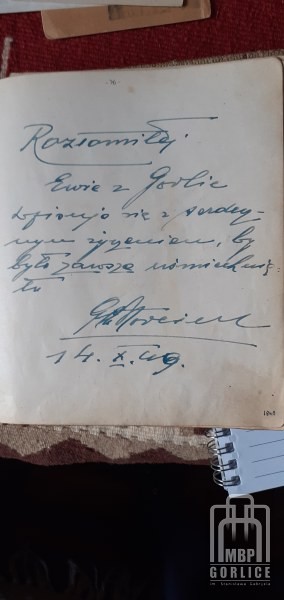 Rozśomiłej
Ewie z Gorlic
wpisuję się z serdecz-
nym życzeniem, by
było zawsze uśmiechnię-
ta
14. X. 49.
1949
MBP
GORLICE
im. Stanisława Gabryela